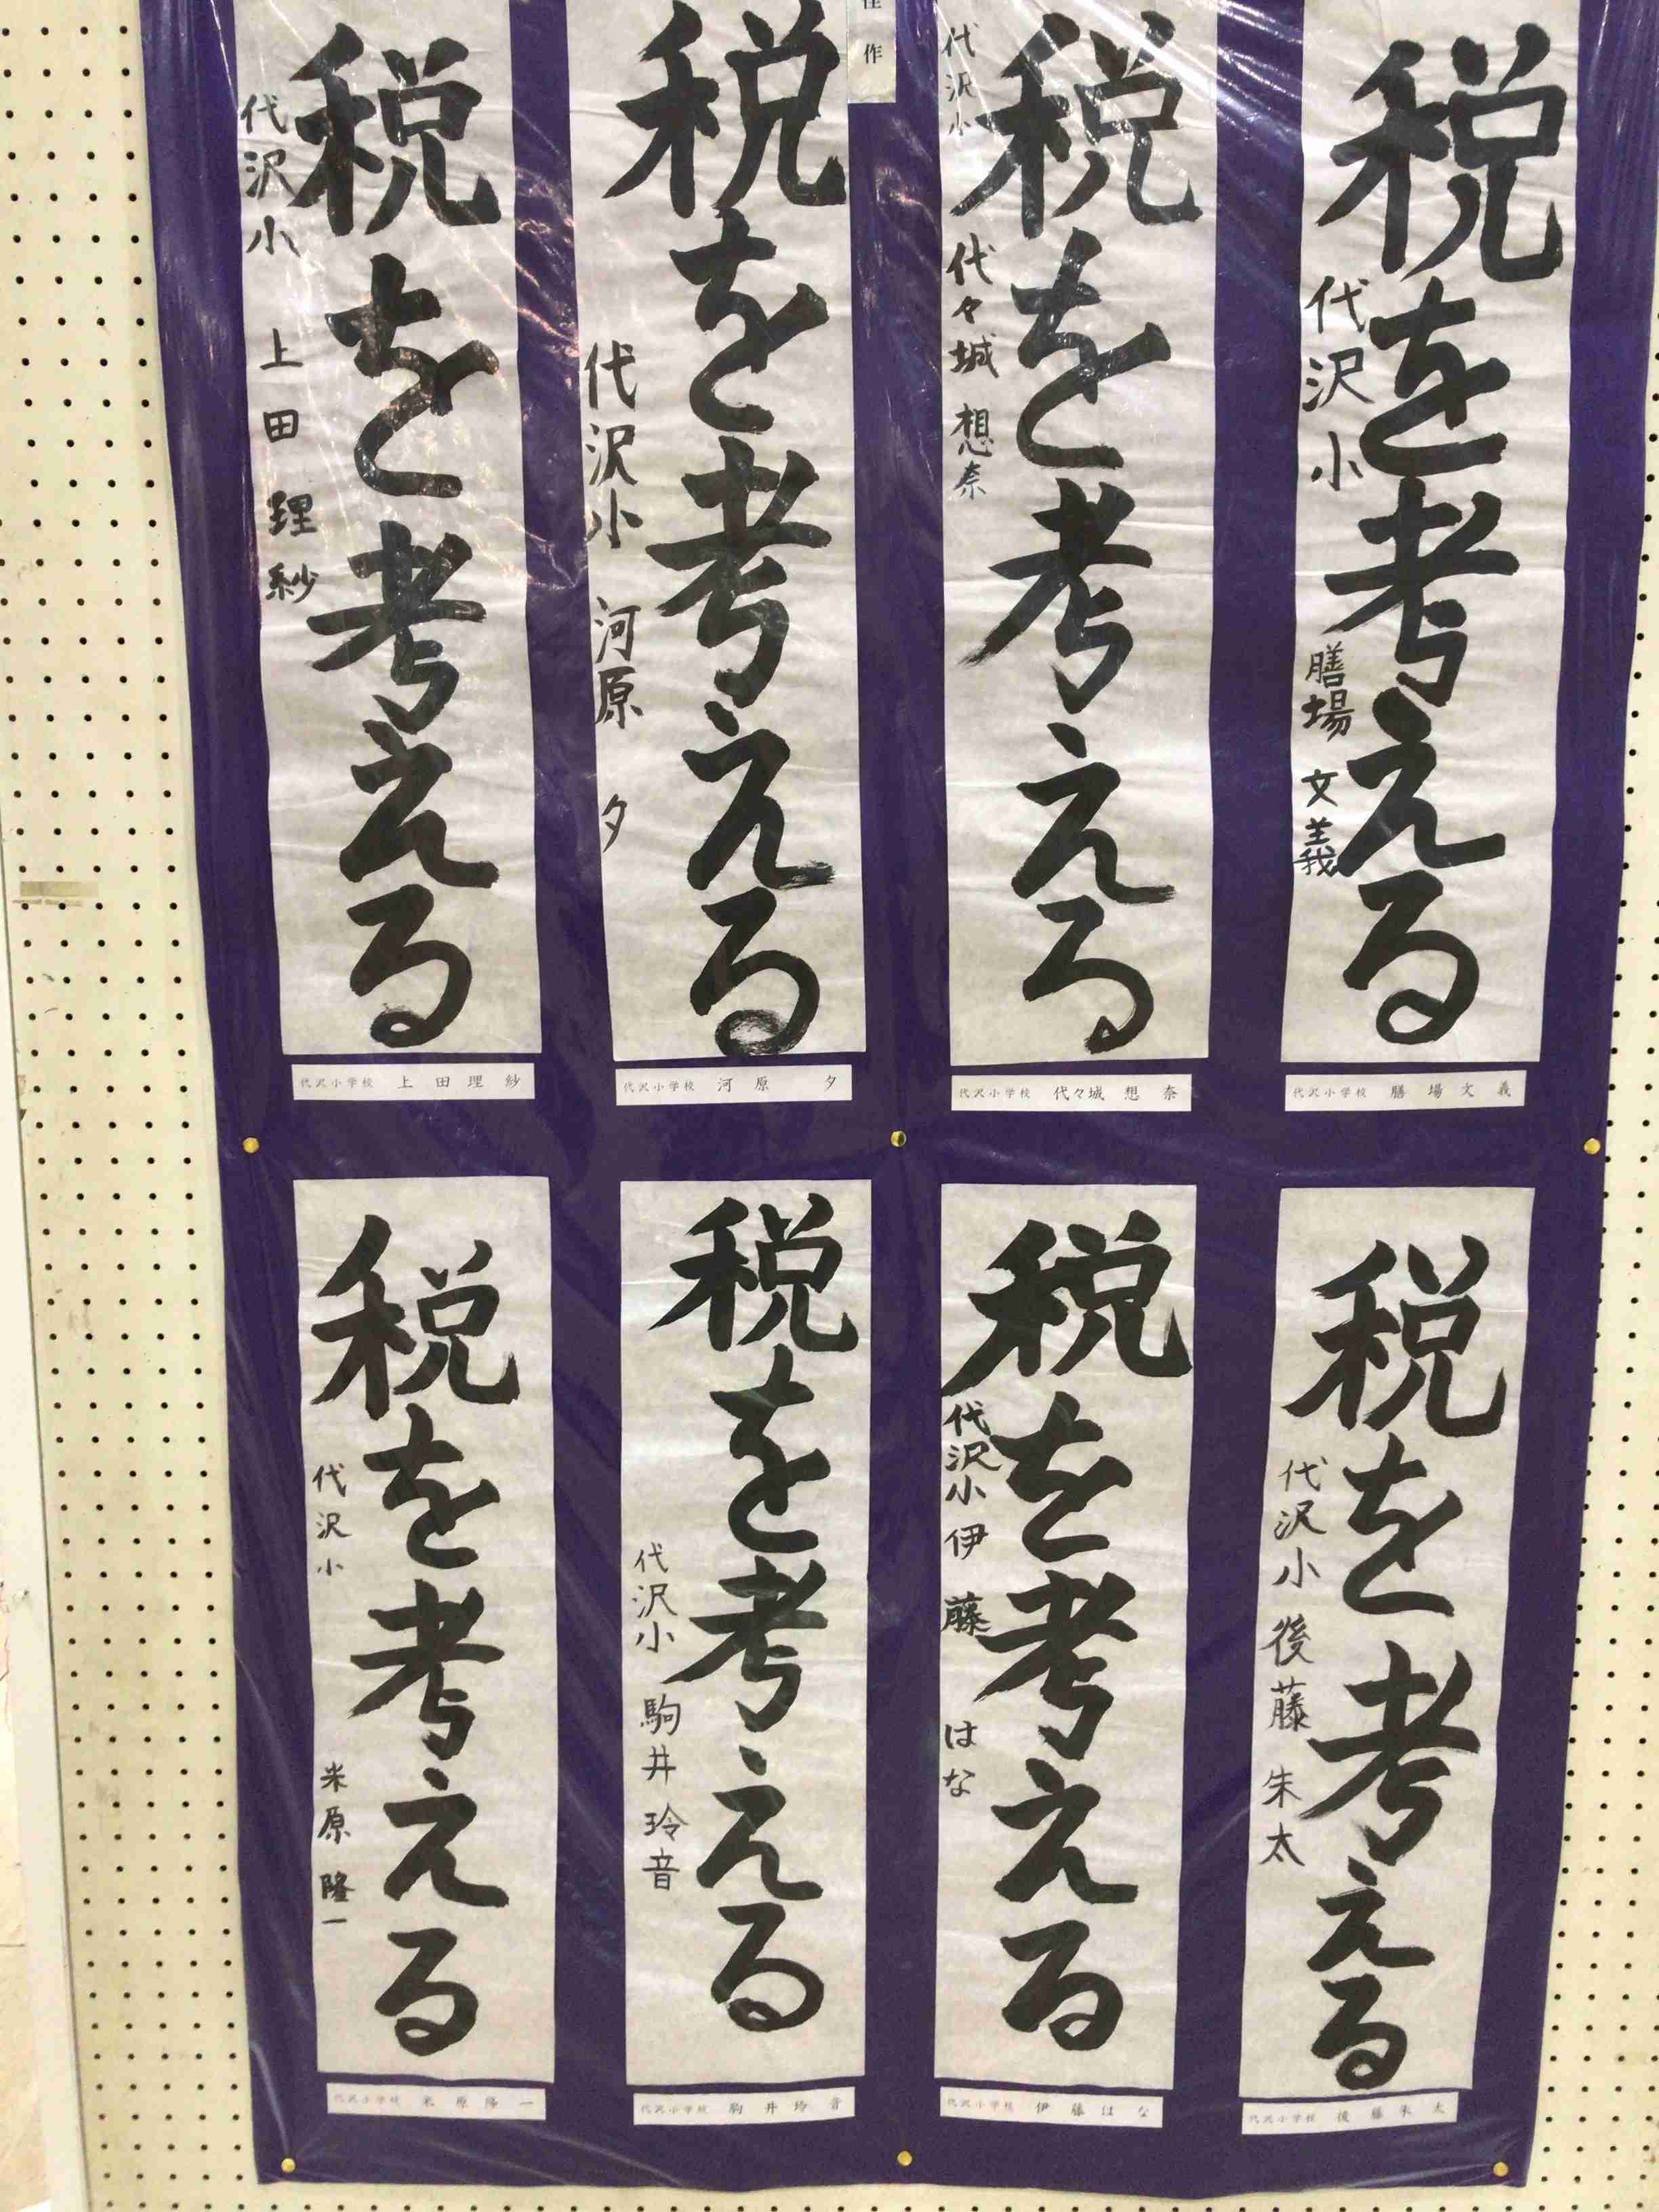 税を考える
代沢小 膳場 文義
代沢小学校 膳場文義
税を考える
代沢小 代々城 想奈
代沢小学校 代々城想奈
作
税を考える
代沢小 河原 夕
代沢小学校 河原 夕
税を考える
代沢小 上田 理紗
代沢小学校 上田理紗
税を考える
代沢小 後藤 朱太
代沢小学校 後藤朱太
税を考える
代沢小 伊藤 はな
代沢小学校 伊藤はな
税を考える
代沢小 駒井 玲音
代沢小学校 駒井玲音
税を考える
代沢小 米原 隆一
代沢小学校 米原隆一